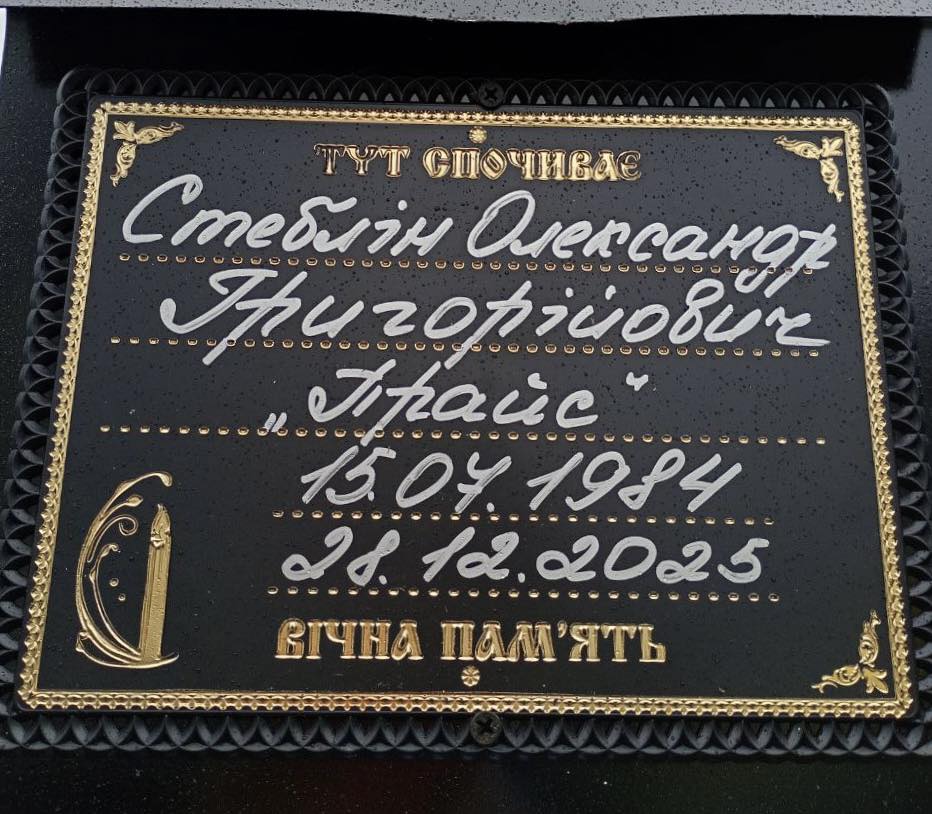 ТУТ СПОЧИВАЄ
Стеблін Олександр
Григорійович
„Прайс“
15.07.1984
28.12.2025
ВІЧНА ПАМ'ЯТЬ